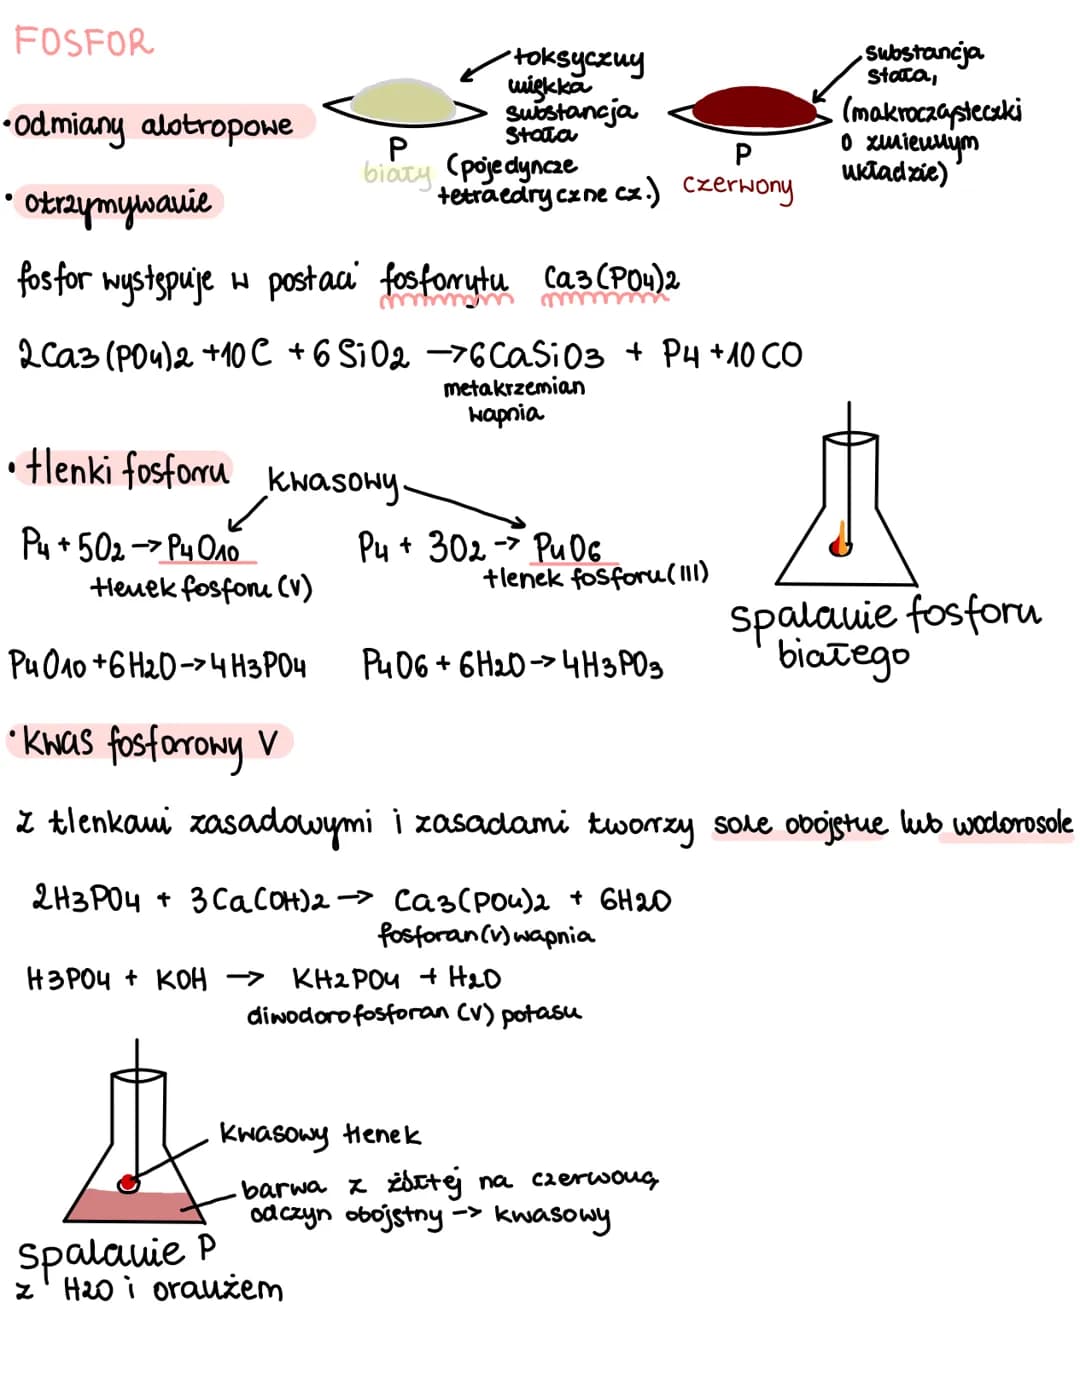 FOSFOR
•odmiany alotropowe
toksyczny
miękka
substancja
stała
(pojedyncze
tetraedryczne cz.)
P
biały
substancja
stała,
(makrocząsteczki
o zmiennym
układzie)
P
czerwony
• otrzymywanie
fosfor występuje w postaci fosforytu Ca3(PO4)2
2Ca3(PO4)2 +10C + 6SiO2 →6CaSiO3 + P4 +10CO
metakrzemian
wapnia
• tlenki fosforu
kwasowy
P4 + 5O2 → P4O10
tlenek fosforu (V)
P4 + 3O2 → P4O6
tlenek fosforu (III)
spalanie fosforu
białego
P4O10 +6H2O → 4H3PO4
P4O6 + 6H2O → 4H3PO3
•kwas fosforowy V
z tlenkami zasadowymi i zasadami tworzy sole obojętne lub wodorosole
2H3PO4 + 3Ca(OH)2 → Ca3(PO4)2 + 6H2O
fosforan(V) wapnia
H3PO4 + KOH → KH2PO4 + H2O
diwodorofosforan (V) potasu
kwasowy tlenek
barwa z żółtej na czerwoną
odczyn obojętny → kwasowy
spalanie P
z H2O i oranżem